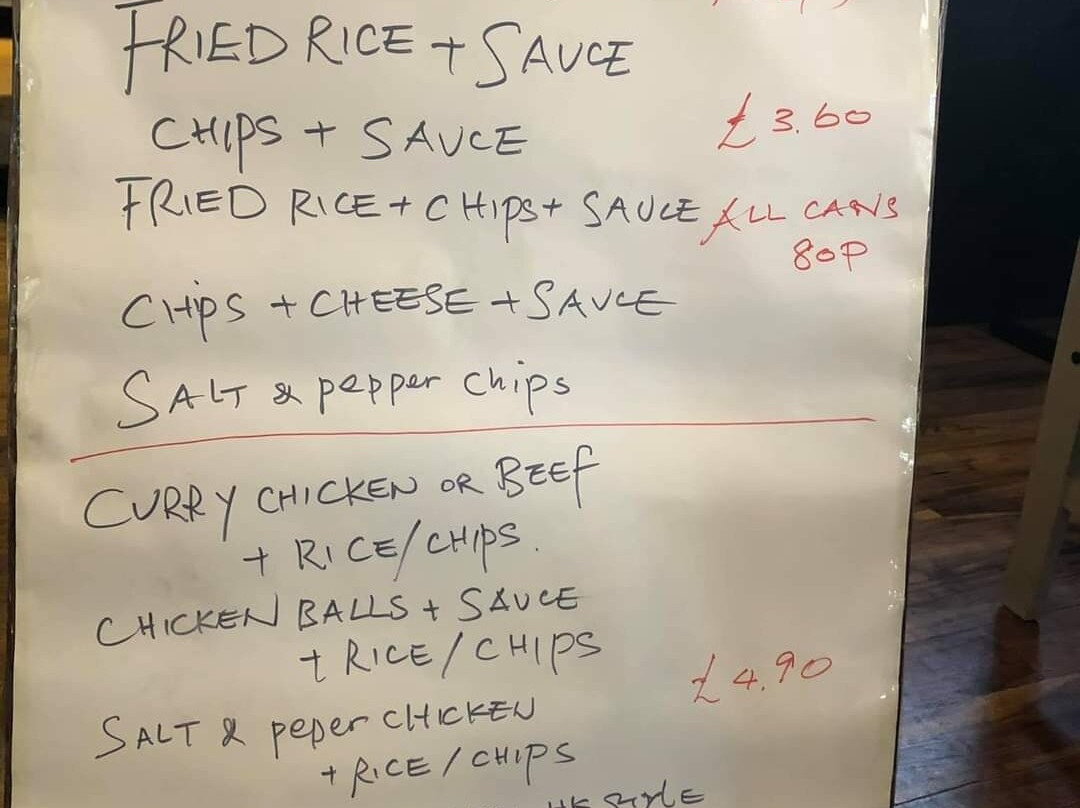 FRIED RICE + SAUCE
CHIPS + SAUCE £3.60
FRIED RICE + CHIPS + SAUCE ALL CANS
80P
CHIPS + CHEESE + SAUCE
SALT & pepper chips
CURRY CHICKEN OR BEEF
+ RICE/CHIPS.
CHICKEN BALLS + SAUCE
+ RICE/CHIPS
£4.90
SALT & peper CHICKEN
+ RICE/CHIPS
HK STYLE